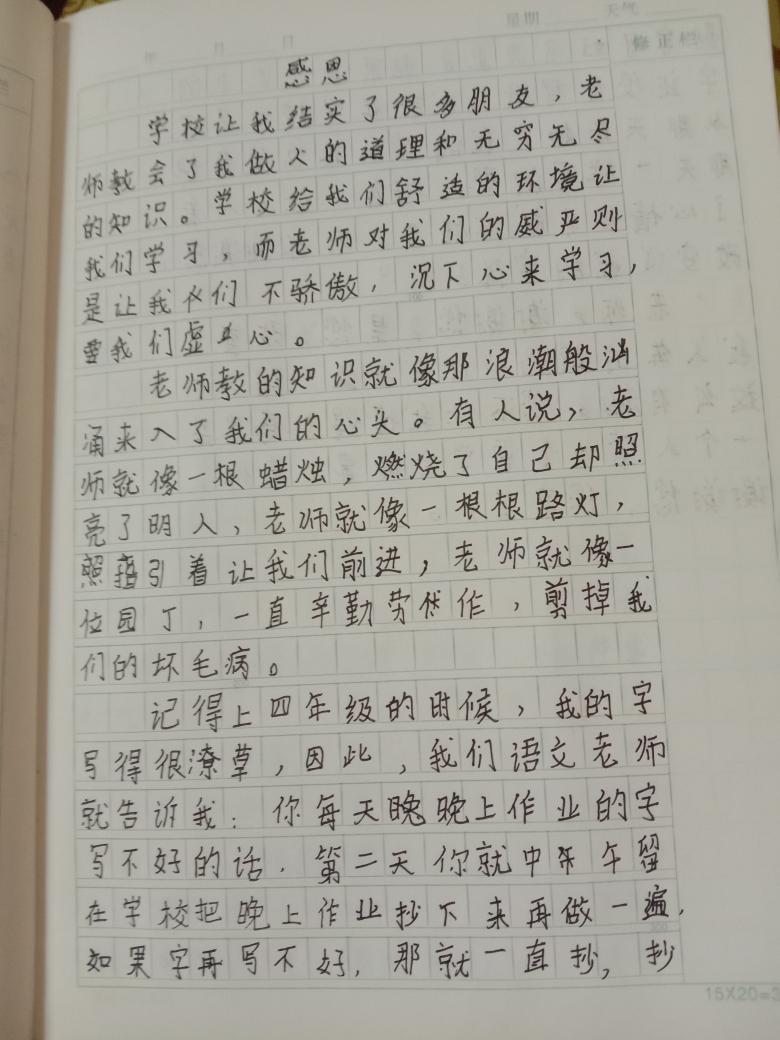 星期 天气
年 月 日
修正栏
感恩
学校让我结实了很多朋友，老
师教会了我做人的道理和无穷无尽
的知识。学校给我们舒适的环境让
我们学习，而老师对我们的威严则
是让我们不骄傲，沉下心来学习，
要我们虚心。
老师教的知识就像那浪潮般汹
涌来入了我们的心头。有人说，老
师就像一根蜡烛，燃烧了自己却照
亮了明人，老师就像一根根路灯，
照指引着让我们前进，老师就像一
位园丁，一直辛勤劳作，剪掉我
们的坏毛病。
记得上四年级的时候，我的字
写得很潦草，因此，我们语文老师
就告诉我：你每天晚晚上作业的字
写不好的话．第二天你就中午留
在学校把晚上作业抄下来再做一遍，
如果字再写不好，那就一直抄，抄
15X20=3